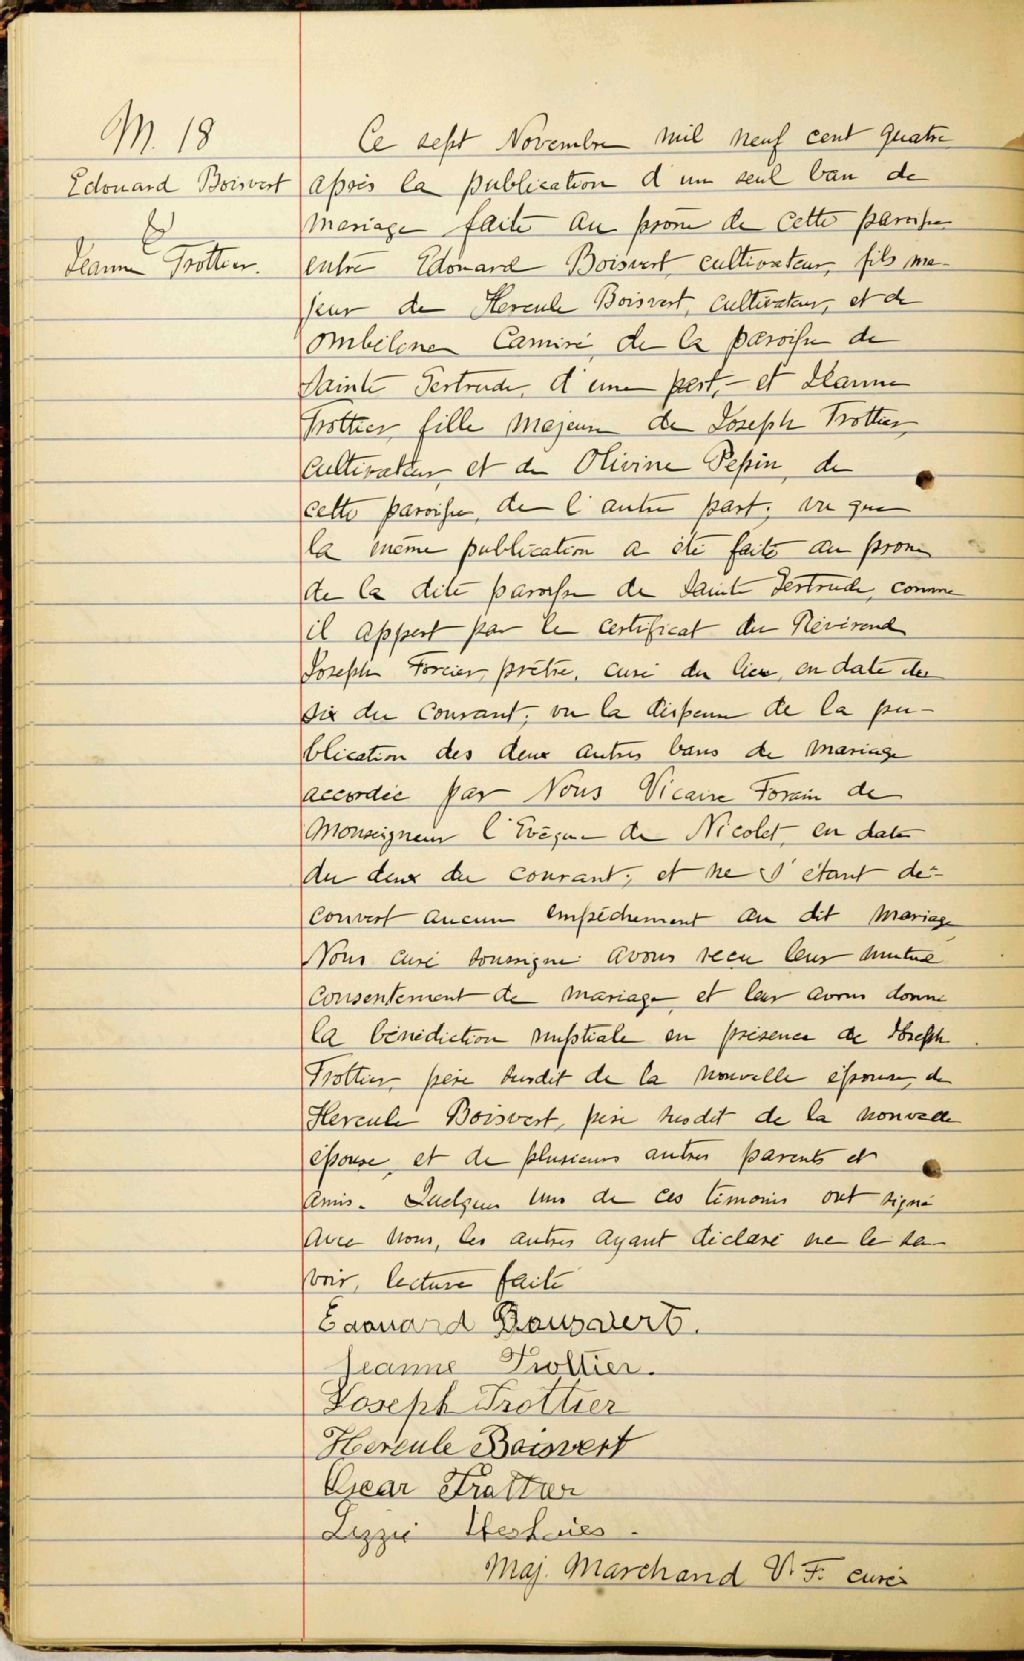 M. 18
Edouard Boisvert
&
Jeanne Trottier.
Ce sept Novembre mil neuf cent quatre
après la publication d'un seul ban de
mariage faite au prône de cette paroisse
entre Edouard Boisvert, cultivateur, fils ma-
jeur de Hercule Boisvert, cultivateur, et de
Ombéline Camiré, de la paroisse de
Sainte Gertrude, d'une part, - et Jeanne
Trottier, fille majeure de Joseph Trottier,
cultivateur, et de Olivine Pepin, de
cette paroisse, de l'autre part; vu que
la même publication a été faite au prône
de la dite paroisse de Sainte Gertrude, comme
il appert par le certificat du Révérend
Joseph Forcier, prêtre, curé du lieu, en date du
six du courant; vu la dispense de la pu-
blication des deux autres bans de mariage
accordée par Nous Vicaire Forain de
Monseigneur l'Evêque de Nicolet, en date
du deux du courant; et ne s'étant dé-
couvert aucun empêchement au dit mariage,
Nous curé soussigné avons reçu leur mutuel
consentement de mariage et leur avons donné
la bénédiction nuptiale en présence de Joseph
Trottier, père susdit de la nouvelle épouse, de
Hercule Boisvert, père susdit de la nouvelle
épouse, et de plusieurs autres parents et
amis. Quelques uns de ces témoins ont signé
avec nous, les autres ayant déclaré ne le sa-
voir, lecture faite
Edouard Bousvert.
Jeanne Trottier.
Joseph Trottier
Hercule Boisvert
Oscar Trottier
Lizzie Heshaies.
Maj. Marchand V. F. curé